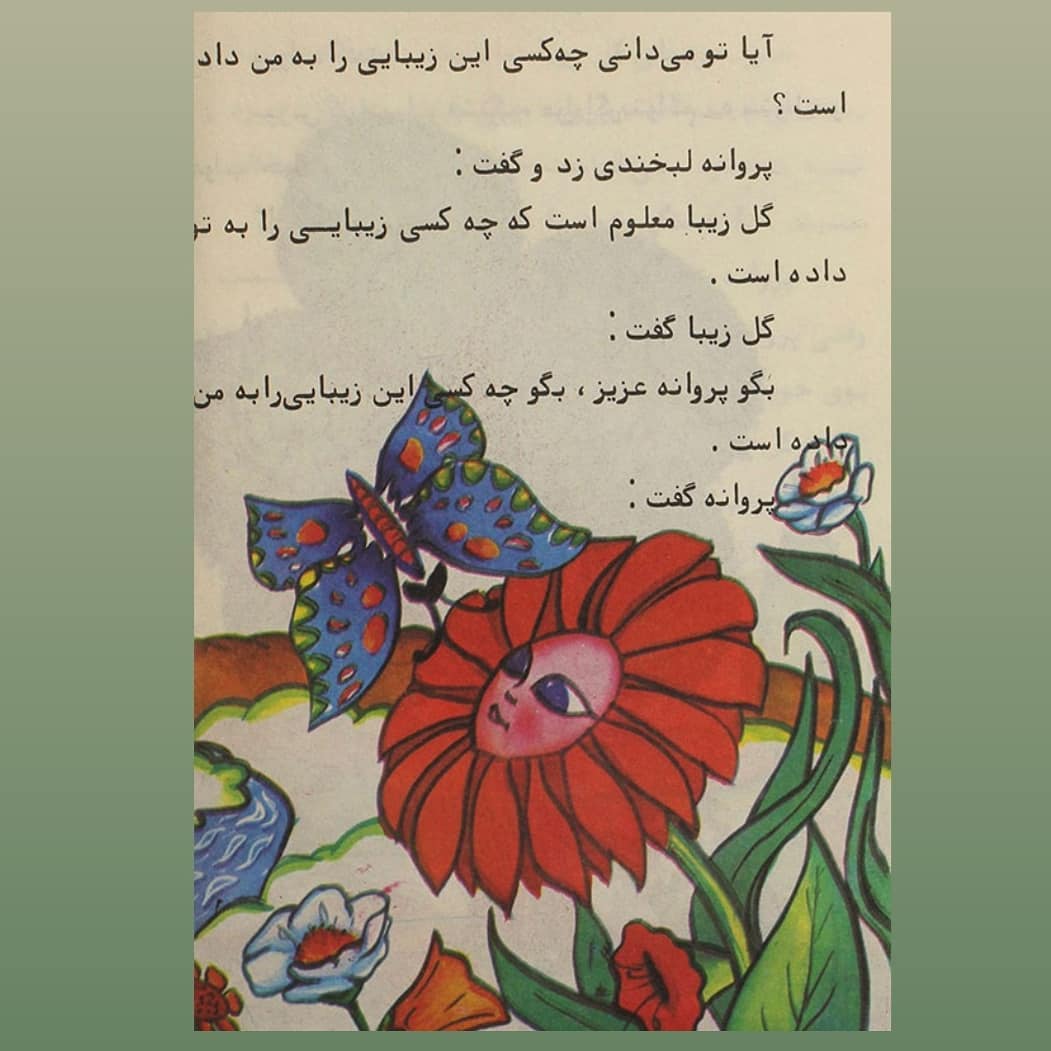 آیا تو می‌دانی چه‌کسی این زیبایی را به من داد
است ؟
پروانه لبخندی زد و گفت :
گل زیبا معلوم است که چه کسی زیبایــی را به تو
داده است .
گل زیبا گفت :
بگو پروانه عزیز ، بگو چه کسی این زیبایی‌رابه من
داده است .
پروانه گفت :